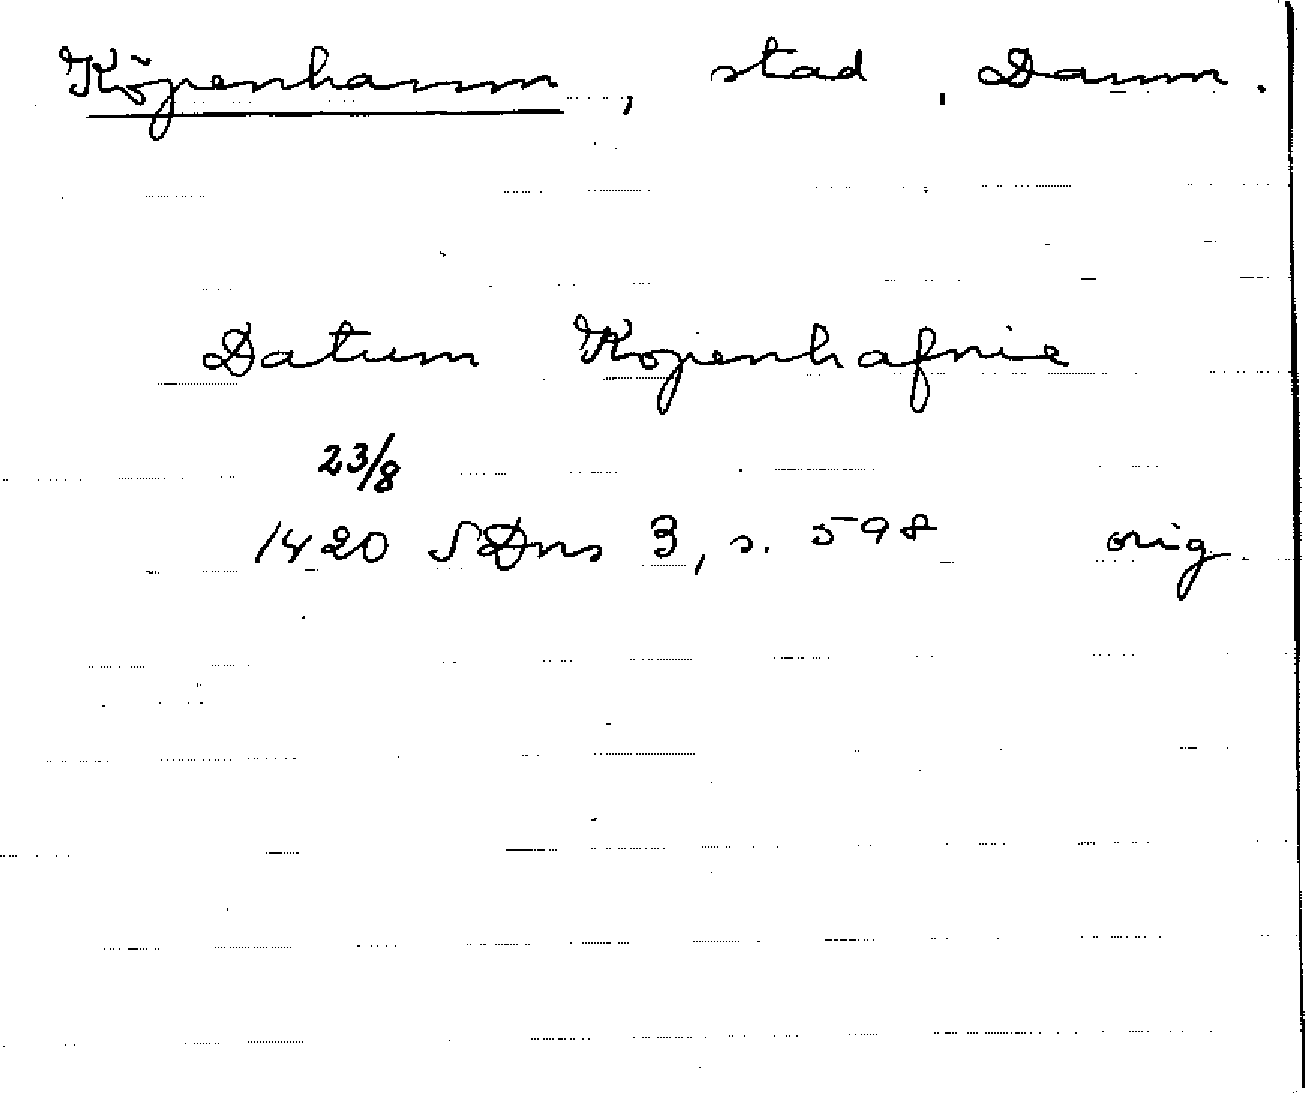 Köpenhamn, stad, Danm.
Datum Kopenhafnie
23/8
1420 SDns 3, s. 598 orig